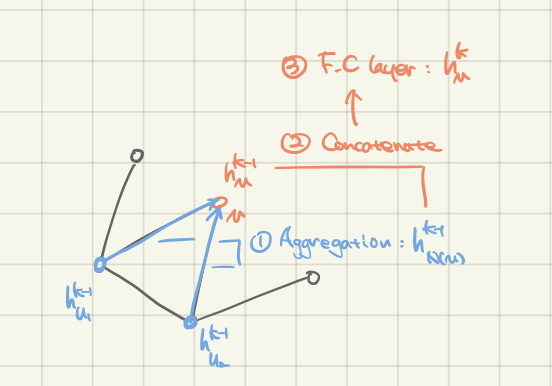 ③ F.C layer : h_v^k
② Concatenate
h_v^{k-1}
v
① Aggregation : h_{N(v)}^{k-1}
h_{u_1}^{k-1}
h_{u_2}^{k-1}